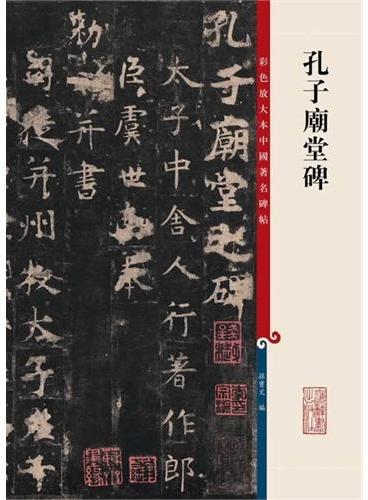 孔子廟堂碑
彩色放大本中國著名碑帖
孫寶文 編
孔子廟堂之碑
太子中舍人行著作郎
臣虞世南奉
勅撰并書
司徒并州牧太子